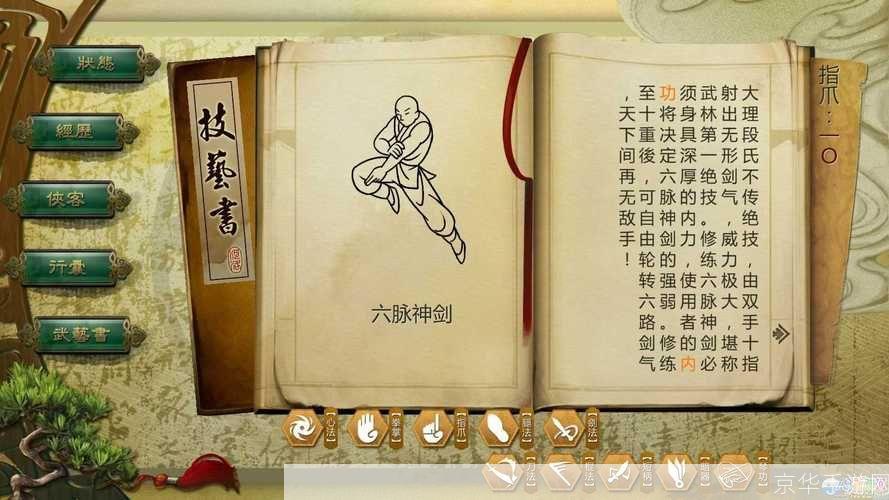 狀態
經歷
俠客
行囊
武藝書
技藝書
六脉神剑
大理段氏不传绝技,由双手十指
射出无形剑气,威力极大,堪称
武林第一绝技。修练六脉神剑必
须身具深厚的内力,使用者的内
功将决定六脉神剑的强弱。修练
至十重後,可自由轮转六路剑气
,天下间再无敌手!
指爪:一〇
【心法】
【拳掌】
【指爪】
【腿法】
【剑法】
【刀法】
【棍法】
【短柄】
【暗器】
【琴功】
京华手游网